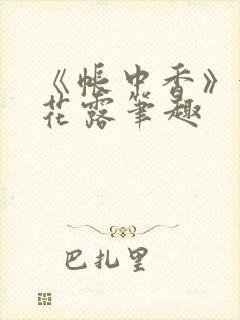 《帐中香》
花露笔趣
巴扎里